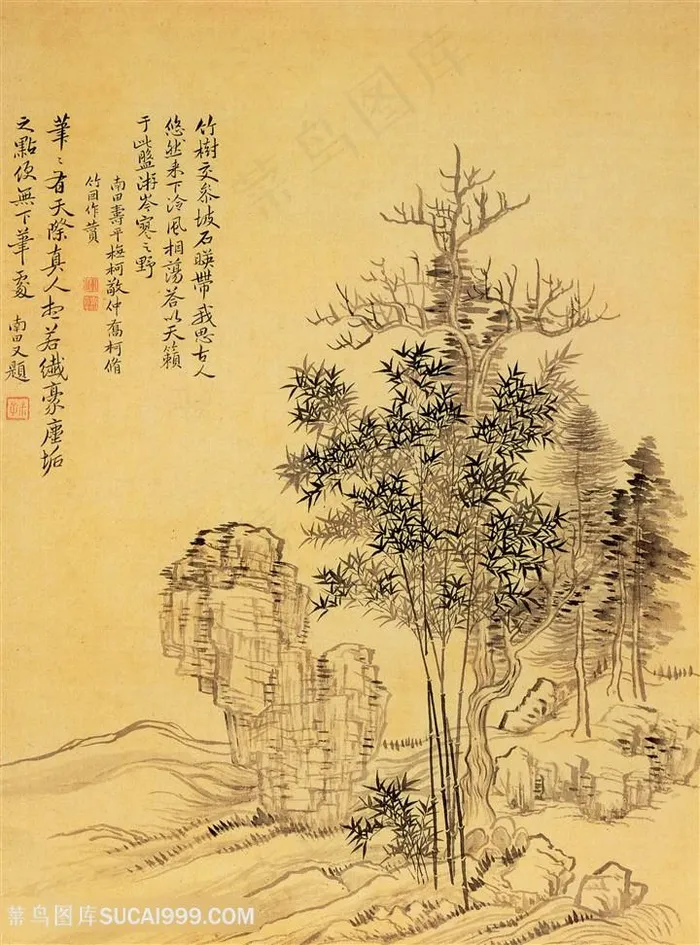 竹樹交參坡石暎帶我思古人
悠然来下泠風相蕩答以天籟
于此盤游岑寥之野
南田壽平橅柯敬仲喬柯脩
竹因作賛
筆〻有天際真人想若纎豪塵垢
之點便無下筆處 南田又題
菜鸟图库
菜鸟图库SUCAI999.COM